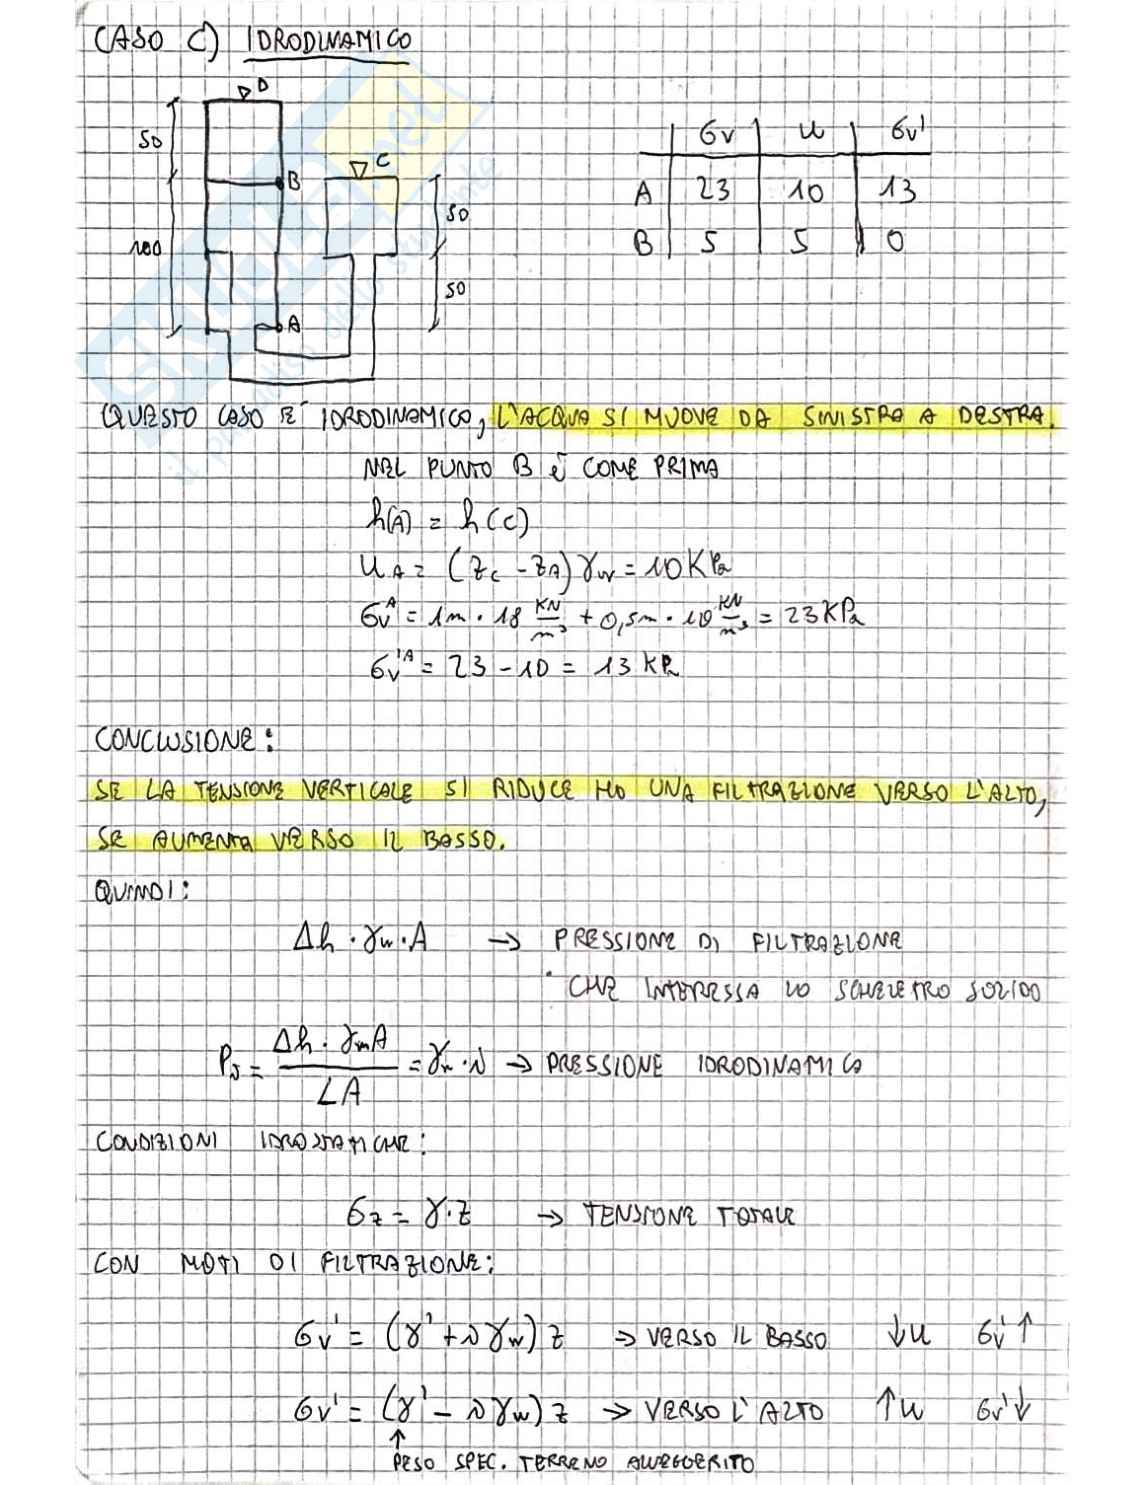 CASO C) IDRODINAMICO
D
50
B
C
50
100
50
A
σv | u | σv'
A | 23 | 10 | 13
B | 5 | 5 | 0
QUESTO CASO E' IDRODINAMICO, L'ACQUA SI MUOVE DA SINISTRA A DESTRA.
NEL PUNTO B È COME PRIMA
h(A) = h(C)
uA = (zc - zA) γw = 10 KPa
σvA = 1m · 18 KN/m³ + 0,5m · 10 KN/m³ = 23 KPa
σv'A = 23 - 10 = 13 KPa
CONCLUSIONE:
SE LA TENSIONE VERTICALE SI RIDUCE HO UNA FILTRAZIONE VERSO L'ALTO,
SE AUMENTA VERSO IL BASSO.
QUINDI:
Δh · γw · A → PRESSIONE DI FILTRAZIONE
CHE INTERESSA LO SCHELETRO SOLIDO
PJ = Δh · γwA / LA = γw · i → PRESSIONE IDRODINAMICA
CONDIZIONI IDROSTATICHE:
σz = γ · z → TENSIONE TOTALE
CON MOTI DI FILTRAZIONE:
σv' = (γ' + i γw) z → VERSO IL BASSO ↓u σv' ↑
σv' = (γ' - i γw) z → VERSO L'ALTO ↑u σv' ↓
↑
PESO SPEC. TERRENO ALLEGGERITO